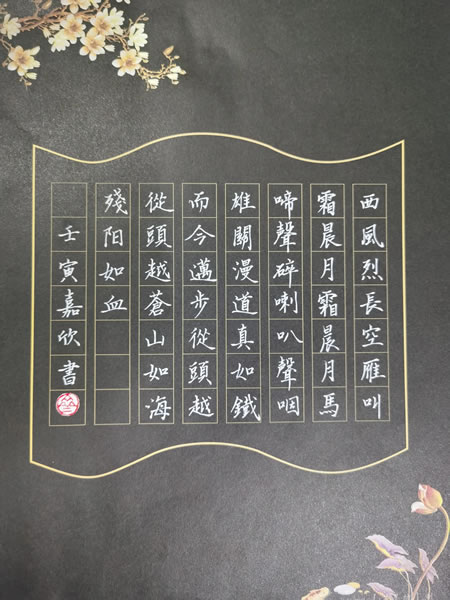 西風烈長空雁叫
霜晨月霜晨月馬
啼聲碎喇叭聲咽
雄關漫道真如鐵
而今邁步從頭越
從頭越蒼山如海
殘阳如血
壬寅嘉欣書